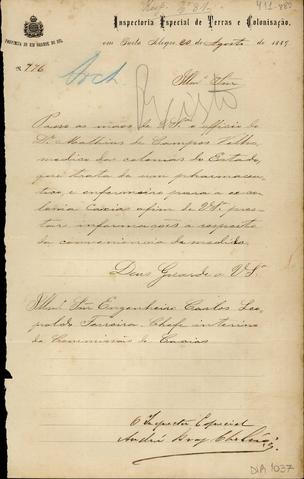 411-880
Inspectoria Especial de Terras e Colonisação,
PROVINCIA DO RIO GRANDE DO SUL
em Porto Alegre, 20 de Agosto de 188
N. 776
Arch
Illmo Snr
Registo
Passo as mãos de VSa o officio do
Dr. Mathias de Campos Velho,
medico das colonias do Estado,
que trata de um pharmaceu-
tico, e enfermeiro para a ex co-
lonia Caxias afim de VSa pres-
tar informações a respeito
da conveniencia da medida.
Deus Guarde a VSa
Illmo Snr Engenheiro Carlos Leo-
poldo Ferreira Chefe interino
da Commissão de Caxias
O Inspector Especial
André
DIA 1037